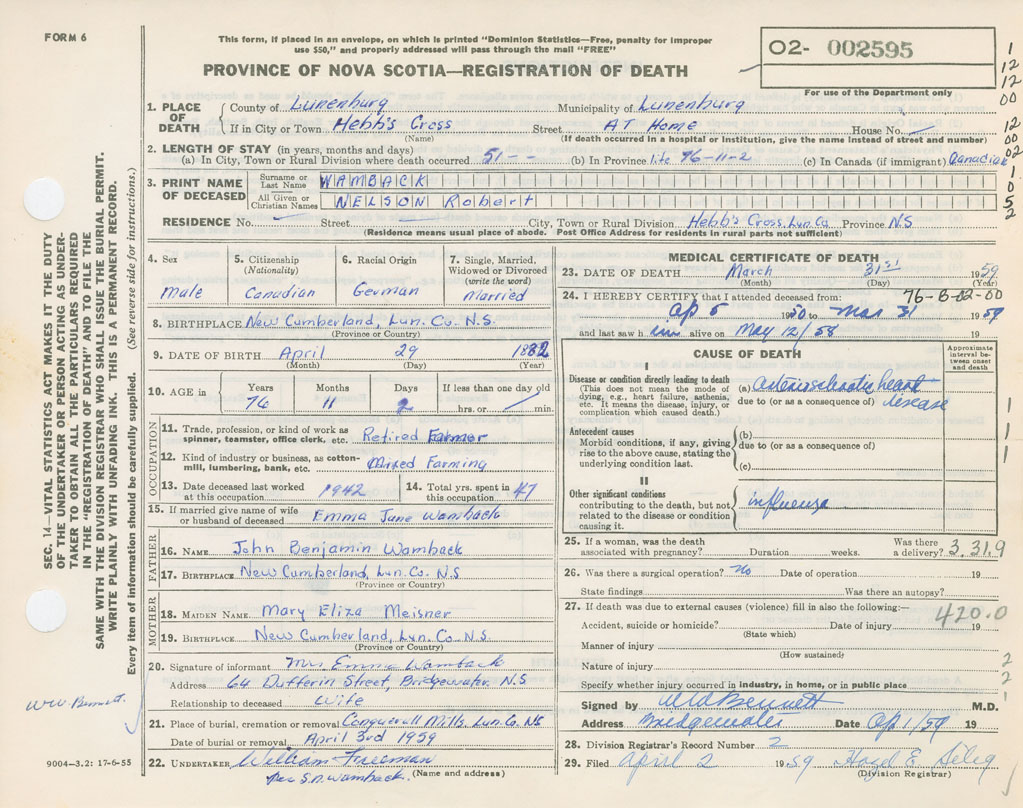 FORM 6
This form, if placed in an envelope, on which is printed "Dominion Statistics—Free, penalty for improper
use $50," and properly addressed will pass through the mail "FREE"
PROVINCE OF NOVA SCOTIA—REGISTRATION OF DEATH
02- 002595
For use of the Department only
1. PLACE OF DEATH
County of Lunenburg Municipality of Lunenburg
If in City or Town Hebb's Cross Street AT Home House No.
(Name) (If death occurred in a hospital or institution, give the name instead of street and number)
2. LENGTH OF STAY (in years, months and days)
(a) In City, Town or Rural Division where death occurred 51 - - (b) In Province life 76-11-2 (c) In Canada (if immigrant) Canadian
3. PRINT NAME OF DECEASED
Surname or Last Name WAMBACK
All Given or Christian Names NELSON Robert
RESIDENCE No. Street City, Town or Rural Division Hebb's Cross, Lun Co Province N.S
(Residence means usual place of abode. Post Office Address for residents in rural parts not sufficient)
4. Sex
male
5. Citizenship
(Nationality)
Canadian
6. Racial Origin
German
7. Single, Married, Widowed or Divorced
(write the word)
married
8. BIRTHPLACE New Cumberland, Lun. Co. N.S.
(Province or Country)
9. DATE OF BIRTH April 29 1882
(Month) (Day) (Year)
10. AGE in
Years 76
Months 11
Days 2
If less than one day old
hrs. or min.
OCCUPATION
11. Trade, profession, or kind of work as spinner, teamster, office clerk, etc. Retired Farmer
12. Kind of industry or business, as cotton-mill, lumbering, bank, etc. Mixed Farming
13. Date deceased last worked at this occupation 1942
14. Total yrs. spent in this occupation 47
15. If married give name of wife or husband of deceased Emma Jane Wamback
FATHER
16. NAME John Benjamin Wamback
17. BIRTHPLACE New Cumberland, Lun. Co. N.S
(Province or Country)
MOTHER
18. MAIDEN NAME Mary Eliza Meisner
19. BIRTHPLACE New Cumberland, Lun. Co. N.S.
(Province or Country)
20. Signature of informant Mrs Emma Wamback
Address 64 Dufferin Street, Bridgewater, N.S
Relationship to deceased Wife
21. Place of burial, cremation or removal Conquerall Mills, Lun. Co, NS
Date of burial or removal April 3rd 1959
22. UNDERTAKER William Freeman
(Name and address)
per S.N. Wamback.
MEDICAL CERTIFICATE OF DEATH
23. DATE OF DEATH March 31st 1959
(Month) (Day) (Year)
24. I HEREBY CERTIFY that I attended deceased from:
Ap 5 1950 to Mar 31 1959
and last saw him alive on May 12/58 19
CAUSE OF DEATH
Approximate interval between onset and death
I
Disease or condition directly leading to death
(This does not mean the mode of dying, e.g., heart failure, asthenia, etc. It means the disease, injury, or complication which caused death.)
(a) arteriosclerotic heart
due to (or as a consequence of) disease
Antecedent causes
Morbid conditions, if any, giving rise to the above cause, stating the underlying condition last.
(b)
due to (or as a consequence of)
(c)
II
Other significant conditions
contributing to the death, but not related to the disease or condition causing it.
influenza
25. If a woman, was the death associated with pregnancy? Duration weeks. Was there a delivery? 3.31.9
26. Was there a surgical operation? No Date of operation 19
State findings Was there an autopsy?
27. If death was due to external causes (violence) fill in also the following:— 420.0
Accident, suicide or homicide? Date of injury 19
(State which)
Manner of injury
(How sustained)
Nature of injury
Specify whether injury occurred in industry, in home, or in public place
Signed by WW Bennett M.D.
Address Bridgewater Date Ap 1/59 19
28. Division Registrar's Record Number 2
29. Filed April 2 1959
(Division Registrar)
SEC. 14—VITAL STATISTICS ACT MAKES IT THE DUTY
OF THE UNDERTAKER OR PERSON ACTING AS UNDER-
TAKER TO OBTAIN ALL THE PARTICULARS REQUIRED
IN THE "REGISTRATION OF DEATH" AND TO FILE THE
SAME WITH THE DIVISION REGISTRAR WHO SHALL ISSUE THE BURIAL PERMIT.
WRITE PLAINLY WITH UNFADING INK. THIS IS A PERMANENT RECORD.
Every item of information should be carefully supplied. (See reverse side for instructions.)
WW Bennett.
9004—3.2: 17-6-55
1
12
12
00
12
00
02
1
0
5
2
1
1
1
2
2
1